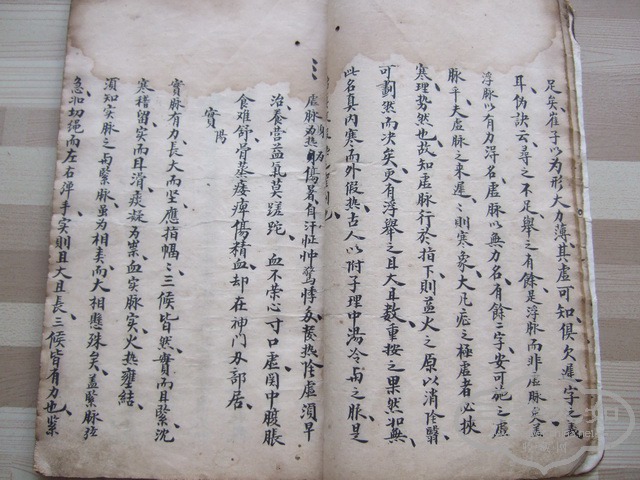 足矣崔子以为形大力薄其虚可知俱欠遲字之義
耳伪訣云尋之不足舉之有餘是浮脉而非虚脉矣盖
浮脉以有力得名虚脉以無力名有餘二字安可施之虚
脉乎夫虚脉之来遲遲則寒象大凡症之極虚者必挟
寒理势然也故知虚脉行於指下則益火之原以消陰翳
可劃然而决矣更有浮舉之且大且数重按之果然如無
此名真内寒而外假热古人以附子理中湯冷与之脹是
虚脉为热傷暑自汗怔忡驚悸多發热陰虚須早
治養营益氣莫蹉跎 血不荣心寸口虚関中腹脹
食难舒骨蒸痿痺傷精血却在神门两部居
實阳
實脉有力長大而坚應指幅幅三候皆然實而且緊沉
寒稽留实而且滑痰凝为祟血实脉实火热壅结
須知实脉之与緊脉虽为相类而大相懸殊矣盖緊脉弦
急如切绳而左右弹手实則且大且長三候皆有力也紧